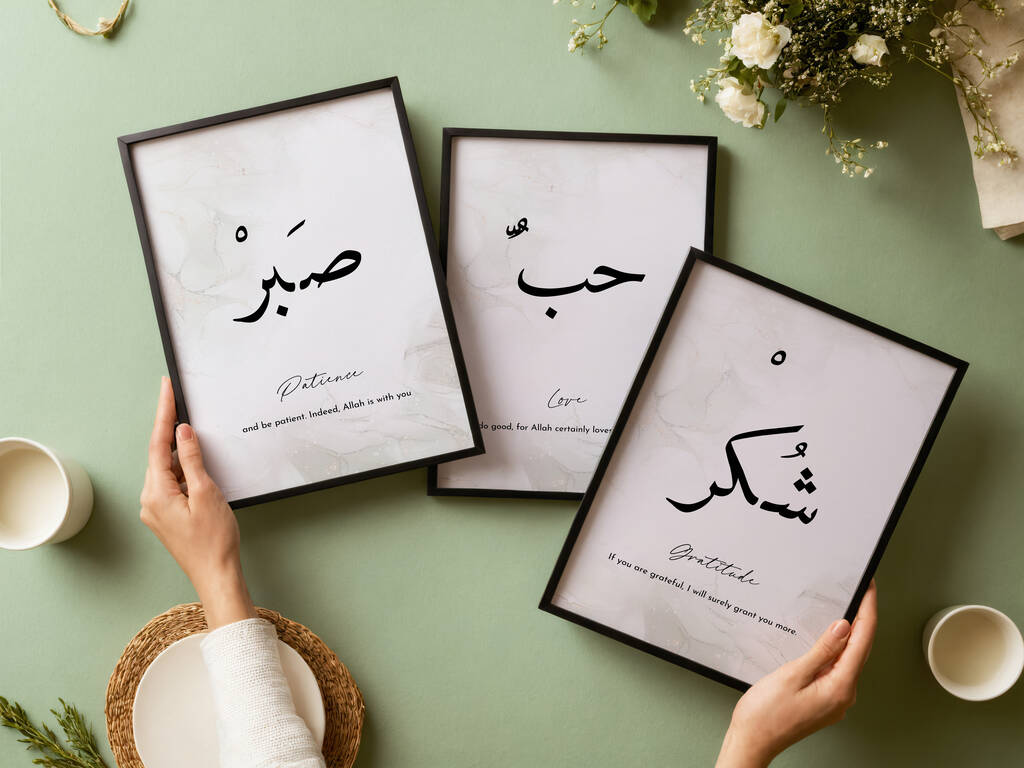 صَبرْ
Patience
and be patient. Indeed, Allah is with you
حبٌ
Love
do good, for Allah certainly loves
شُكْر
Gratitude
If you are grateful, I will surely grant you more.